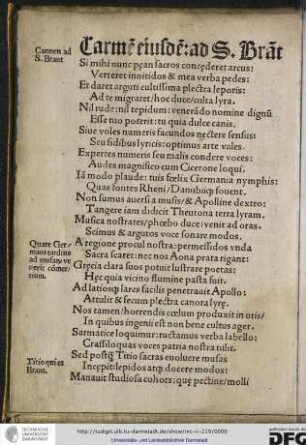 Carmē eiusdē: ad S. Brāt
Carmen ad
S. Brant
Si mihi nunc pęan sacros concęderet arcus:
Verteret inuitidos & mea verba pedes:
Et daret arguti cultissima plectra leporis:
Ad te migraret/hoc duce/culta lyra.
Nil rude: nil tepidum: venerādo nomine dignū
Esse tuo poterit: tu quia dulce canis.
Siue voles numeris facundos nectere sensus:
Seu fidibus lyricis: optimus arte vales.
Expertes numeris seu malis condere voces:
Audes magnifico cum Cicerone loqui.
Iā modo plaude: tuis fœlix Germania nymphis:
Quas fontes Rheni/Danubiiq̄ fouent.
Non sumus auersi a musis/& Apolline dextro:
Tangere iam didicit Theutona terra lyram.
Musica nostrates/phœbo duce: venit ad oras.
Scimus & argutos voce sonare modos.
Quare Ger-
A regione procul nostra: permessidos vnda
Sacra scatet: nec nos Aona prata rigant:
Gręcia clara suos potuit lustrare poetas:
Hęc quia vicino flumine pasta fuit.
Ad latiosq̄ lares facilis penetrauit Apollo:
Attulit & secum plectra canora lyrę.
Nos tamen/horrendis cœlum produxit in otis/
In quibus ingenii est non bene cultus ager.
Sarmatice loquimur: ructamus verba labello:
Crassiloquas voces patria nostra tulit.
Titio qui et
Brant.
Sed postq̄ Titio sacras euoluere musas
Incepit: lepidos atq̄ docere modos:
Manauit studiosa cohors: que pectine/molli
http://tudigit.ulb.tu-darmstadt.de/show/inc-ii-219/0005
Universitäts- und Landesbibliothek Darmstadt